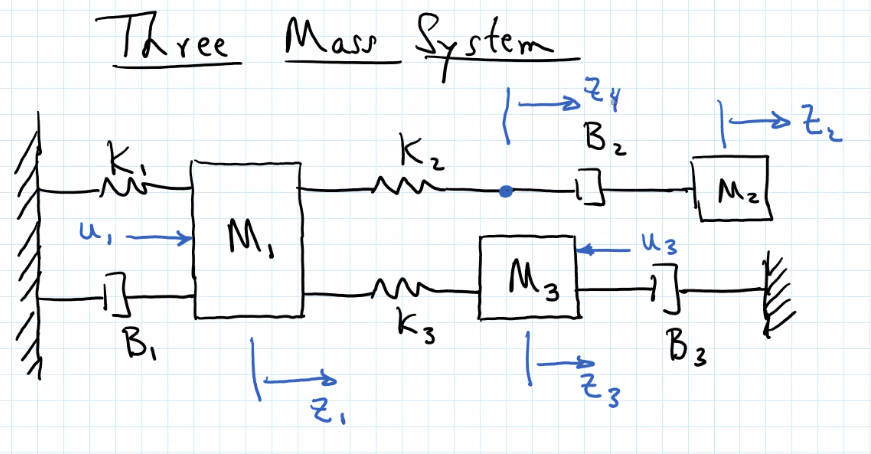 Three Mass System
z₄
B₂
z₂
K₁
K₂
M₂
u₁
M₁
u₃
M₃
B₁
K₃
B₃
z₁
z₃